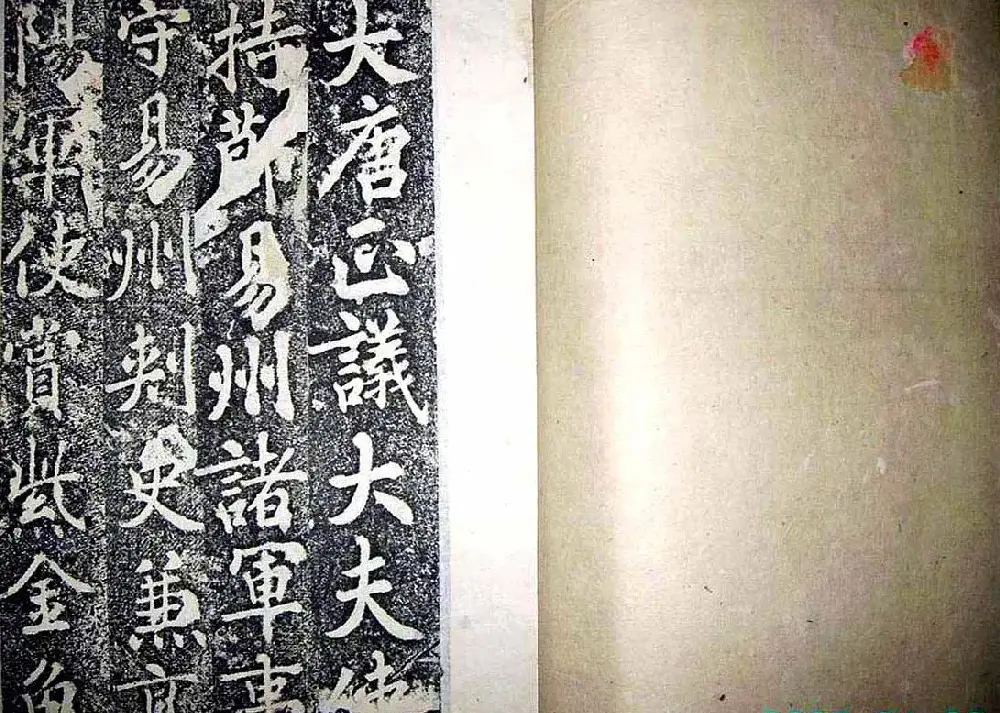 大唐正議大夫使
持節易州諸軍事
守易州刺史兼高
陽軍使賞紫金魚